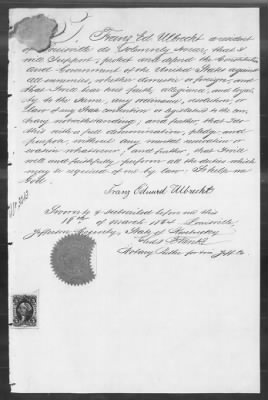 I, Franz Ed. Ulbrecht a resident
of Louisville do Solemnly Swear, that I
will Support, protect and defend the Constitution
and Government of the United States against
all enemies, whether domestic or foreign, and
that I will bear true faith, allegiance, and loyal-
ty to the Same, any ordinance, resolution or
law of any State Convention or Legislature to the con-
trary notwithstanding, and further, that I do
this with a full determination, pledge and
purpose, without any mental reservation or
evasion whatsoever; and further, that I will
well and faithfully perform all the duties which
may be required of me by law: So help me
God.
Franz Eduard Ulbrecht
Sworn to & subscribed before me this
18th of March 1864 Louisville,
Jefferson County, State of Kentucky
Notary Public for Jeff. Co.